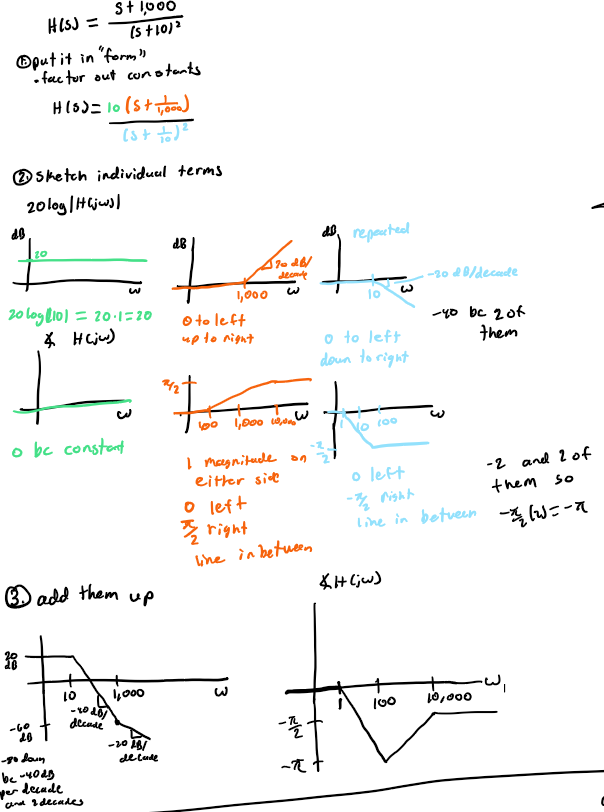 H(s) = s+1,000 / (s+10)²
① put it in "form"
• factor out constants
H(s) = 10 (s + 1/1,000) / (s + 1/10)²
② sketch individual terms
20log|H(jω)|
dB
20
ω
20log|10| = 20·1=20
dB
20 dB/
decade
1,000
ω
0 to left
up to right
dB
repeated
-20 dB/decade
10
ω
-40 bc 2 of
them
0 to left
down to right
∡ H(jω)
ω
0 bc constant
π/2
100 1,000 10,000
ω
1 magnitude on
either side
0 left
π/2 right
line in between
1 10 100
ω
-π/2
0 left
-π/2 right
line in between
-2 and 2 of
them so
-π/2(2) = -π
③. add them up
20
dB
10 1,000
ω
-40 dB/
decade
-60
dB
-20 dB/
decade
-80 down
bc -40dB
per decade
and 2 decades
∡H(jω)
ω
1 100 10,000
-π/2
-π